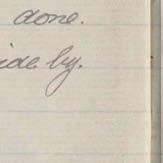 done.
ide by.